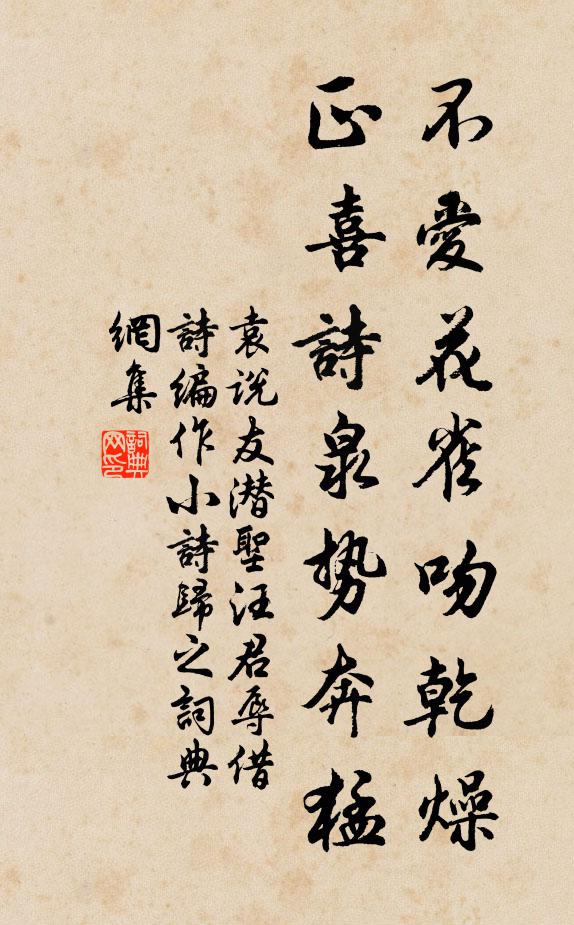 不愛花雀吻乾燥
正喜詩泉势奔猛
袁说友潜聖汪君辱借
詩编作小詩歸之詞典
網集
詞典
网印